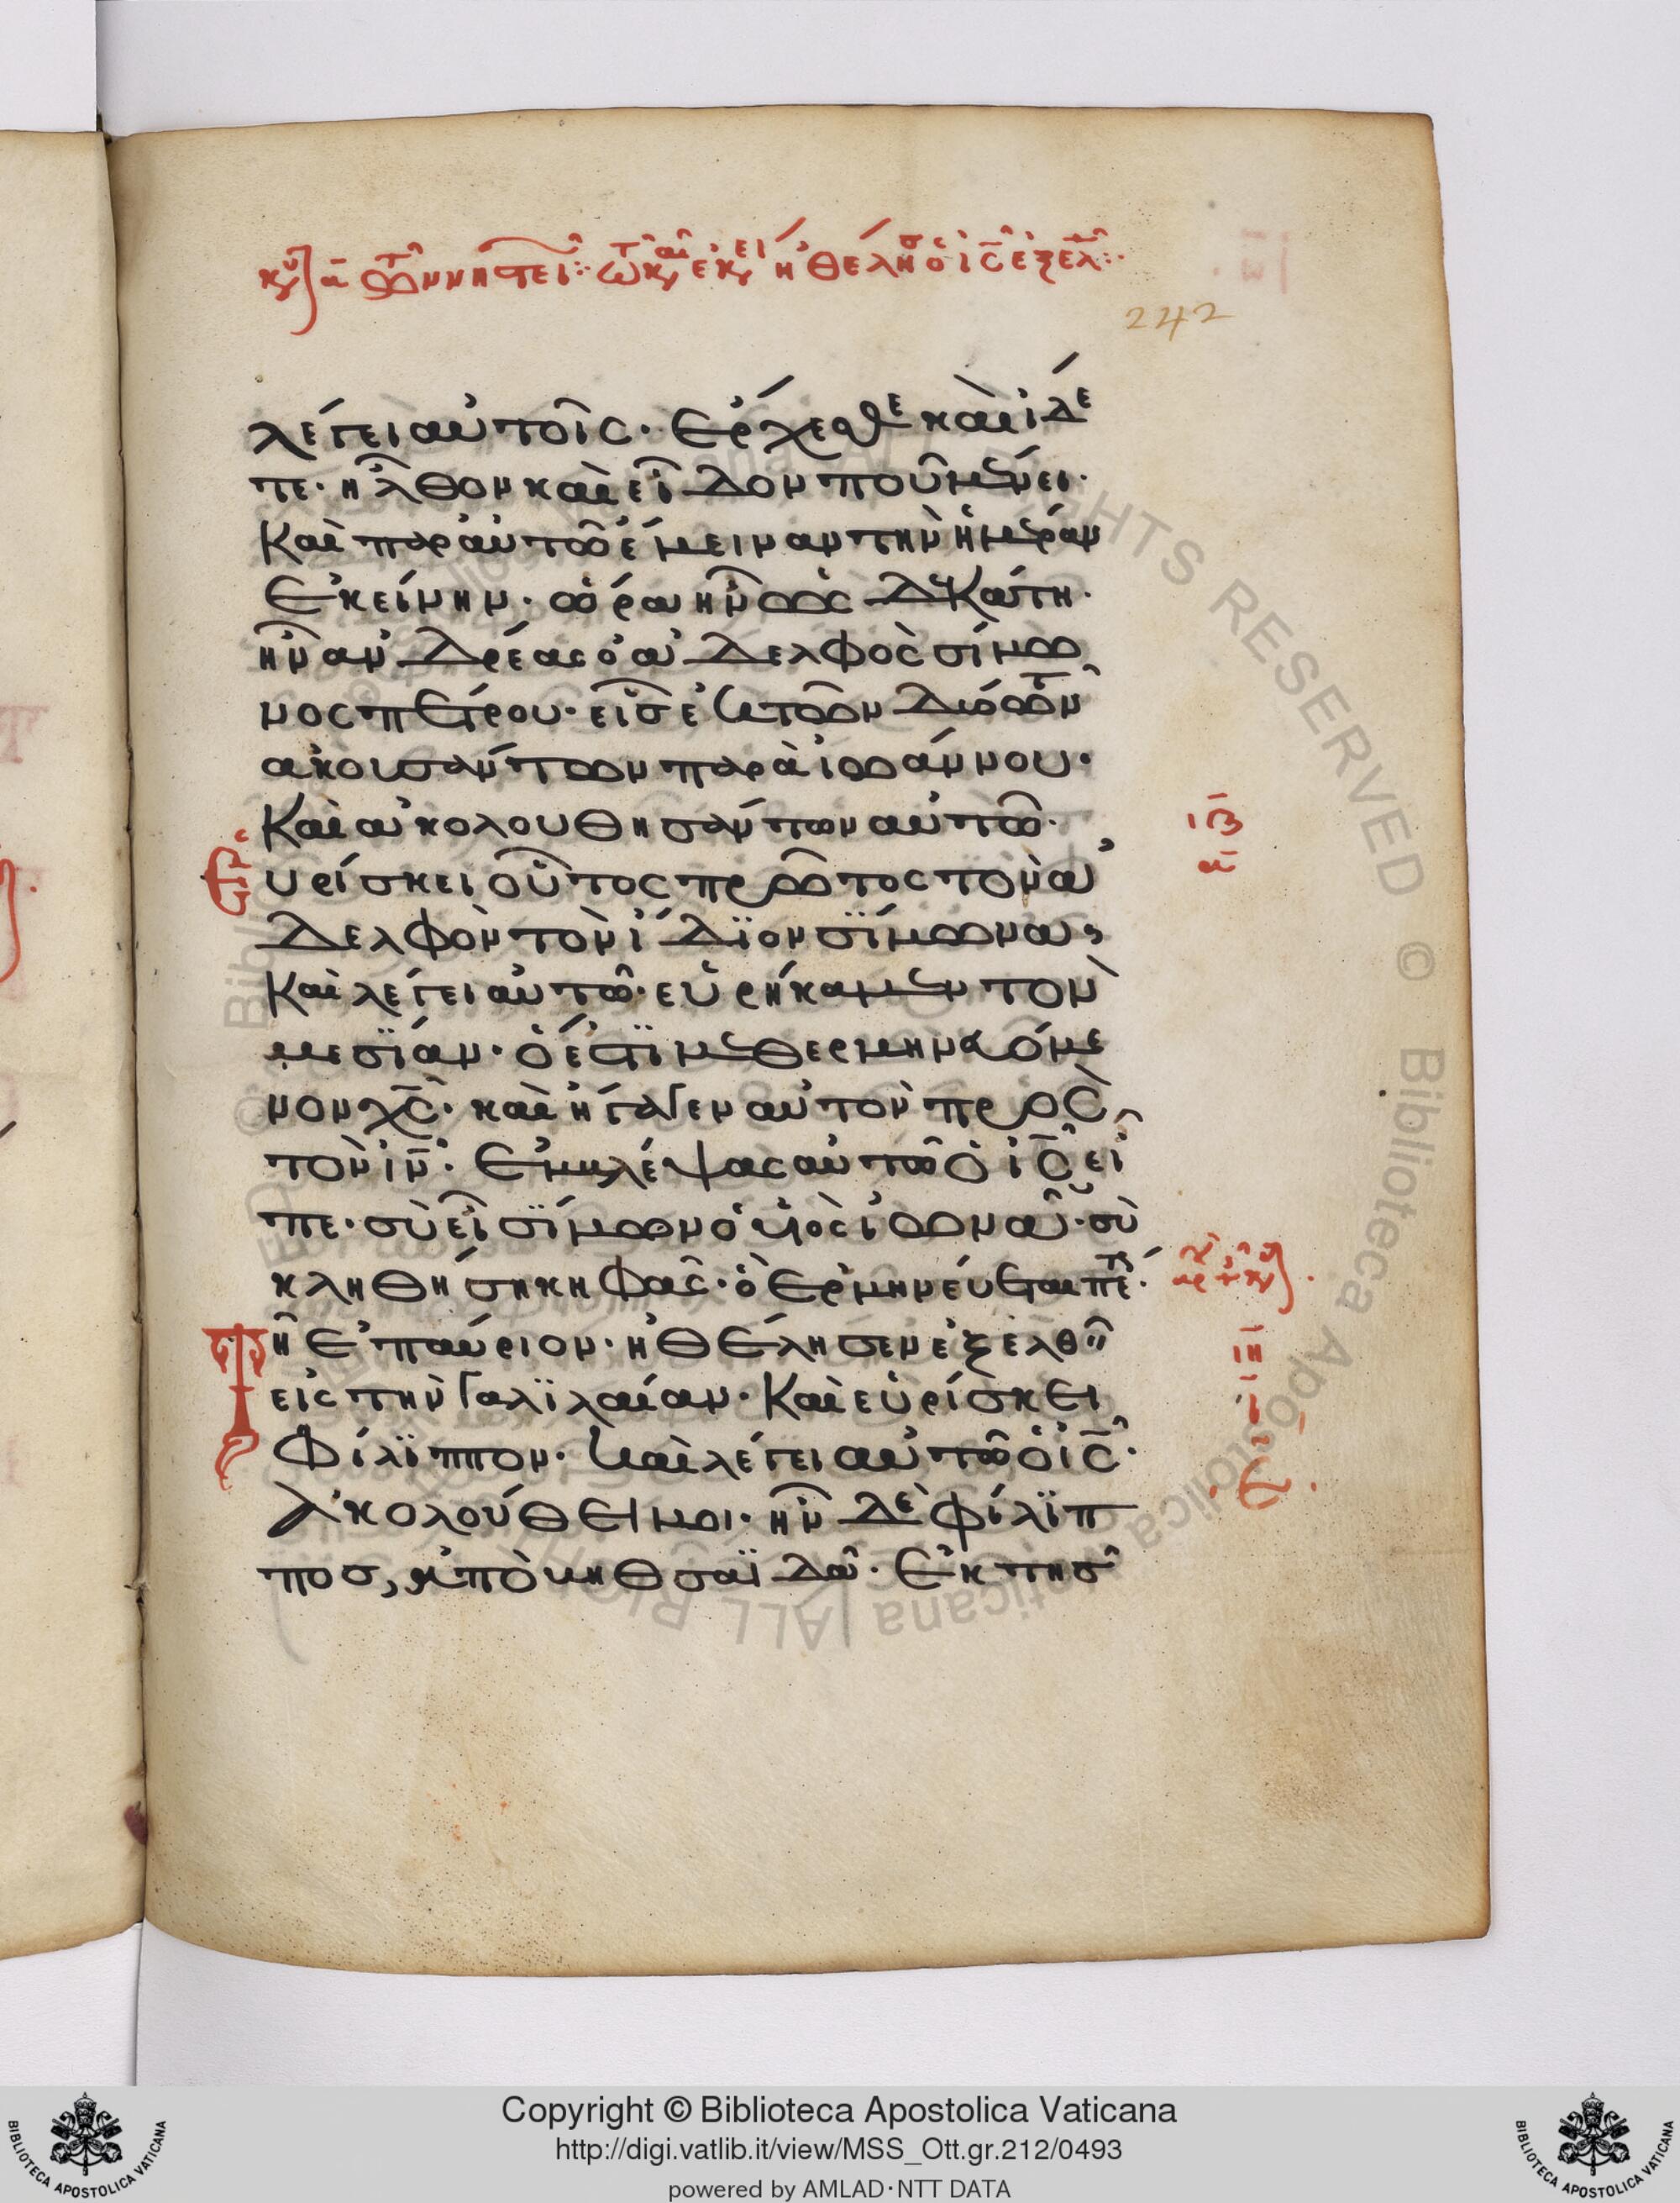 242
λέγει αὐτοῖς· Ἔρχεσθε καὶ ἴδε
τε· ἦλθον καὶ εἶδον ποῦ μένει·
Καὶ παρ αὐτῶ ἔμειναν τὴν ἡμέραν
Ἐκείνην· ὥρα ἦν ὡς δεκάτη·
ἦν ἀνδρέας ὁ ἀδελφὸς σίμω
νος πέτρου· εἷς ἐκ τῶν δύο τῶν
ακουσάντων παρὰ ἰωάννου·
Καὶ ἀκολουθησάντων αὐτῶ·
υρίσκει οὗτος πρῶτος τὸν ἀ
δελφὸν τὸν ἴδϊον σϊίμωνα,
Καὶ λέγει αὐτῶ· εὑρήκαμεν τὸν
μεσϊίαν· ὅ ἐστϊ μεθερμηνευόμε
νον χς· καὶ ἤγαγεν αὐτὸν πρὸς
τὸν ιν· Ἐμβλέψας αὐτῶ ὁ ις εἶ
πε· σὺ εἶ σϊίμων ὁ υἱὸς ἰωνᾶ· σὺ
κληθήση κηφᾶς· ὃ Ἑρμηνεύεται πέτρος·
Τῆ Ἐπαύριον· ἠθέλησεν ἐξελθεῖν
εἰς τὴν Γαλϊλαίαν· Καὶ εὑρίσκει
Φίλϊππον· καὶ λέγει αὐτῶ ὁ ις·
Ἀκολούθει μοι· ἦν δὲ φίλϊπ
πος, ἀπὸ βηθσαϊδᾶ· Ἐκ τῆς
ιζ
α
ιη
ι
Biblioteca Apostolica Vaticana ALL RIGHTS RESERVED ©
Copyright © Biblioteca Apostolica Vaticana
http://digi.vatlib.it/view/MSS_Ott.gr.212/0493
powered by AMLAD·NTT DATA
BIBLIOTECA APOSTOLICA VATICANA
BIBLIOTECA APOSTOLICA VATICANA